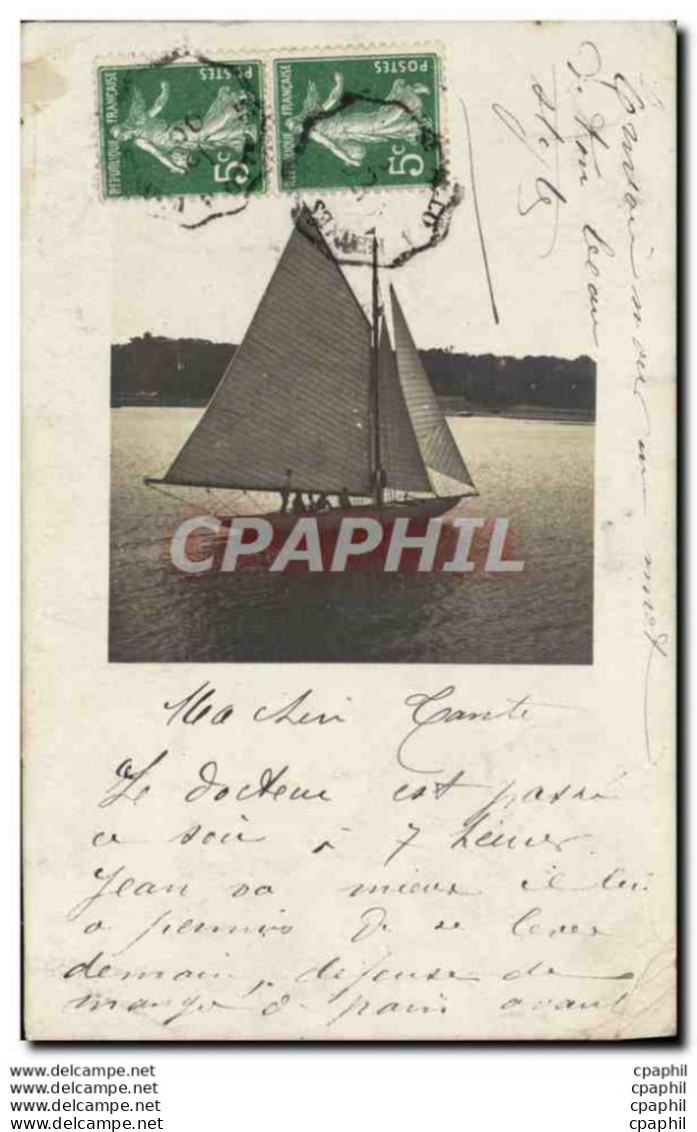 POSTES
RÉPUBLIQUE FRANÇAISE
5c
POSTES
RÉPUBLIQUE FRANÇAISE
5c
CPAPHIL
Ma chère Tante
Le docteur est passé
ce soir à 7 heures
Jean va mieux il lui
a permis de se lever
demain, défense de
manger du pain avant
un mot
cpaphil
cpaphil
cpaphil
cpaphil
www.delcampe.net
www.delcampe.net
www.delcampe.net
www.delcampe.net